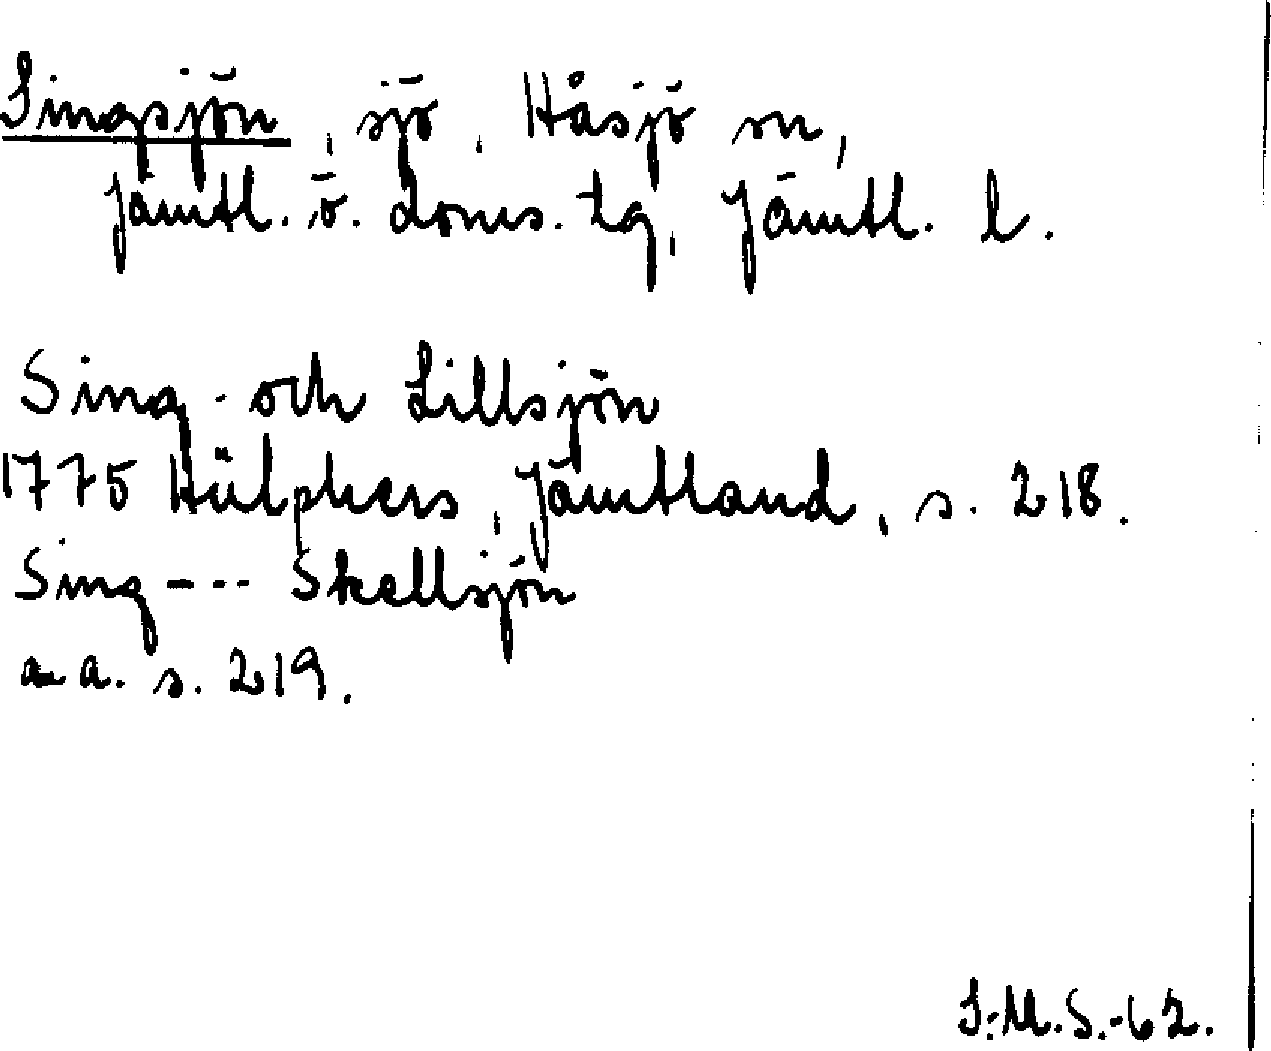 Singsjön, sjö, Håsjö sn,
Jämtl. ö. doms. tg, Jämtl. l.
Sing- och Lillsjön
1775 Hülphers, Jämtland, s. 218.
Sing --- Skallsjön
a a. s. 219.
I.M.S.-62.